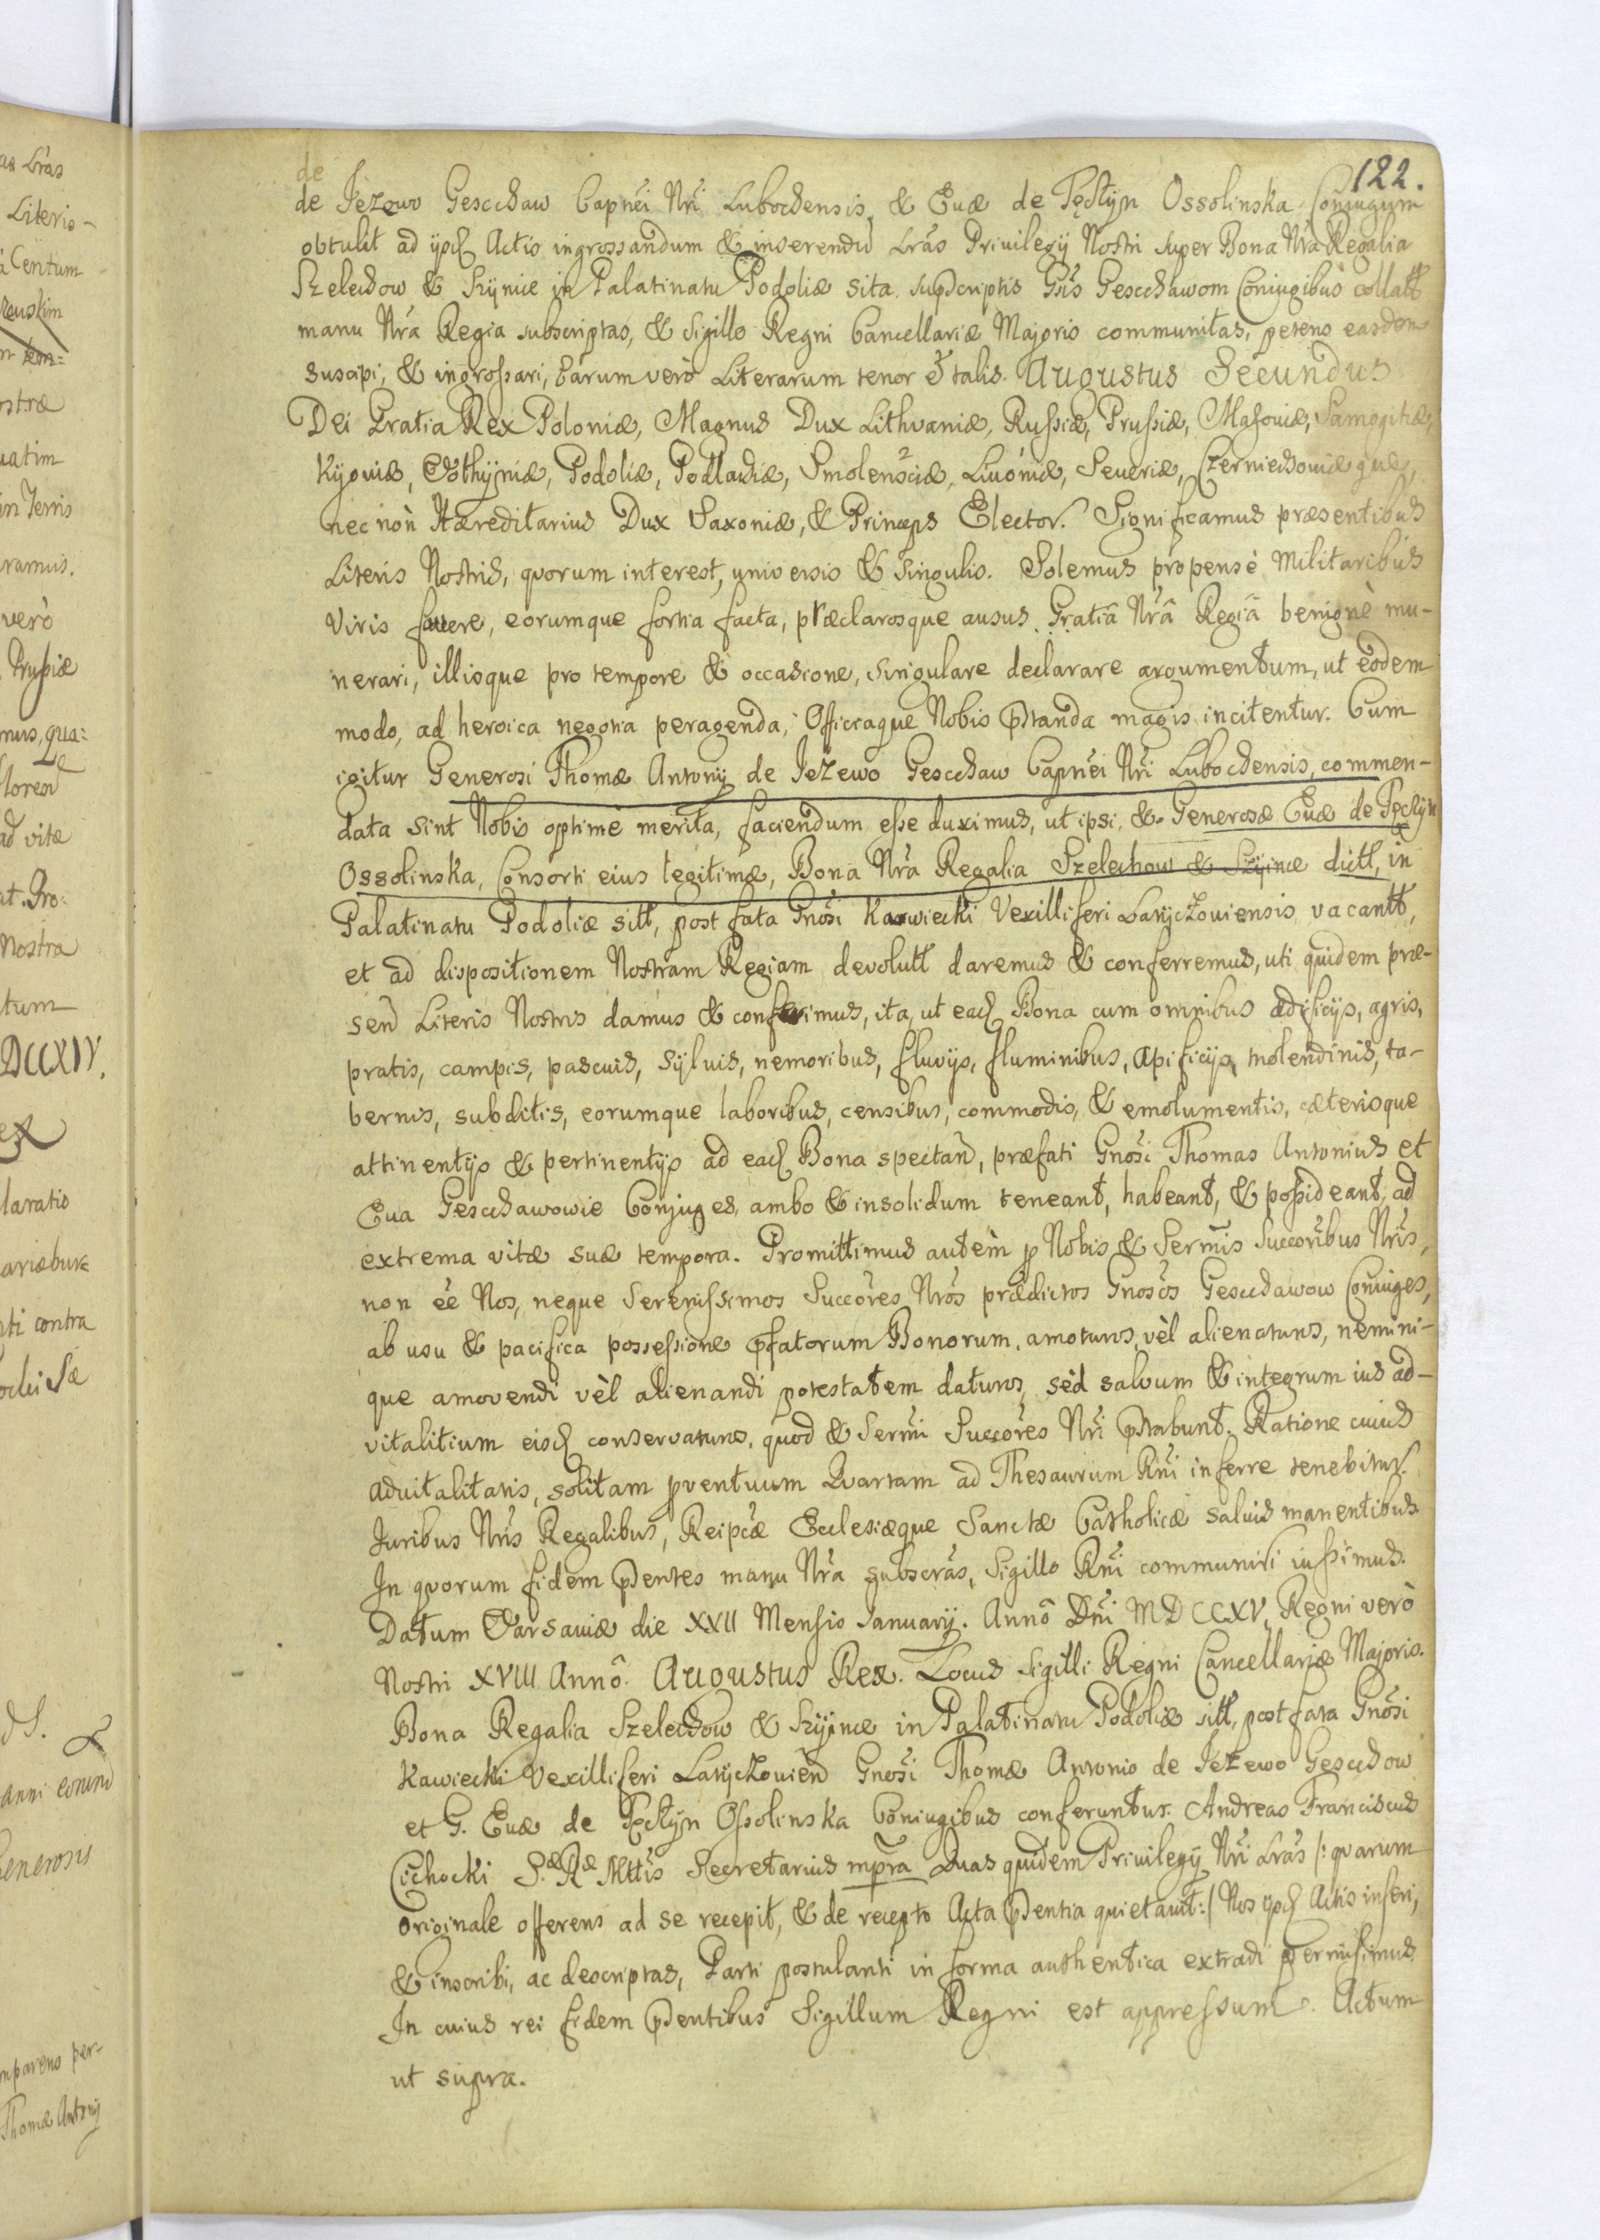 122.
de
de Jezewo Gescchaw Capnei Nri Lubochensis, & Euæ de Tęczyn Ossolinska Coniugum
obtulit ad ipsq Actis ingrossandum & inserendũ Lras Privilegij Nostri super Bona Nra Regalia
Szelechow & Szyince in Palatinatu Podoliæ sita supscriptis Gsis Gescchawom Coniugibus collatt
manu Nra Regia subscriptas, & Sigillo Regni Cancellariæ Majoris communitas, petens easdem
suscipi, & ingrossari, Earum verò Literarum tenor ẽ talis. Augustus Secundus
Dei Gratia Rex Poloniæ, Magnus Dux Lithvaniæ, Russiæ, Prussiæ, Masoviæ, Samogitiæ,
Kijoviæ, Volhyniæ, Podoliæ, Podlachiæ, Smolensciæ, Livoniæ, Severiæ, Czerniechoviæque,
nec non Hæreditarius Dux Saxoniæ, & Princeps Elector. Significamus præsentibus
Literis Nostris, quorum interest, universis & singulis. Solemus propensè Militaribus
Viris favere, eorumque fortia facta, præclarosque ausus Gratiâ Nrâ Regiâ benignè mu-
nerari, illisque pro tempore & occasione, singulare declarare argumentum, ut eodem
modo, ad heroica negotia peragenda, Officiaque Nobis pstanda magis incitentur. Cum
igitur Generosi Thomæ Antonij de Jeżewo Gescchaw Capnei Nri Lubochensis, commen-
data sint Nobis optimè merita, faciendum esse duximus, ut ipsi, & Generosæ Euæ de Tęczyn
Ossolinska, Consorti eius legitimæ, Bona Nra Regalia Szelechow & Szyince dictt, in
Palatinatu Podoliæ sitt, post fata Gnosi Kawiecki Vexilliferi Latyczoviensis vacantt,
et ad dispositionem Nostram Regiam devolutt daremus & conferremus, uti quidem præ-
sen Literis Nostris damus & conferimus, ita, ut eadq Bona cum omnibus ædificijs, agris,
pratis, campis, pascuis, sylvis, nemoribus, fluvijs, fluminibus, apificijs, molendinis, ta-
bernis, subditis, eorumque laboribus, censibus, commodis, & emolumentis, cæterisque
attinentijs & pertinentijs ad eadq Bona spectan, præfati Gnosi Thomas Antonius et
Eua Gescchawowie Conjuges, ambo & insolidum teneant, habeant, & possideant, ad
extrema vitæ suæ tempora. Promittimus autem p Nobis & Sermis Succoribus Nris,
non eẽ Nos, neque Serenissimos Succores Nros prædictos Gnosos Gescchawow Coniuges,
ab usu & pacifica possessione pfatorum Bonorum, amoturos, vèl alienaturos, nemini-
que amovendi vèl alienandi potestatem daturos, sèd salvum & integrum ius ad-
vitalitium eisq conservaturos, quod & Sermi Succores Nri pstabunt. Ratione cuius
advitalitatis, solitam pventuum Quartam ad Thesaurum Rni inferre tenebitur.
Juribus Nris Regalibus, Reipcæ Ecclesiæque Sanctæ Catholicæ salvis manentibus.
In quorum fidem pdentes manu Nra subscras, Sigillo Rni communiri iussimus.
Datum Varsaviæ die XXII Mensis Januarij. Annô Dni MDCCXV, Regni verò
Nostri XVIII Annô. Augustus Rex. Locus Sigilli Regni Cancellariæ Majoris.
Bona Regalia Szelechow & Szyince in Palatinatu Podoliæ sitt, post fata Gnosi
Kawiecki Vexilliferi Latyczovien Gnosi Thomæ Antonio de Jeżewo Gescchow
et G. Euæ de Tęczyn Ossolinska Coniugibus conferuntur. Andreas Franciscus
Cichocki S. R. Mttis Secretarius mpra Quas quidem Privilegij Nri Lras /: quarum
originale offerens ad se recepit, & de recepto Acta pdentia quietavit :/ Nos ipsq Actis inseri,
& inscribi, ac descriptas, Parti postulanti in forma authentica extradi permisimus.
In cuius rei fidem pdentibus Sigillum Regni est appressum. Actum
ut supra.